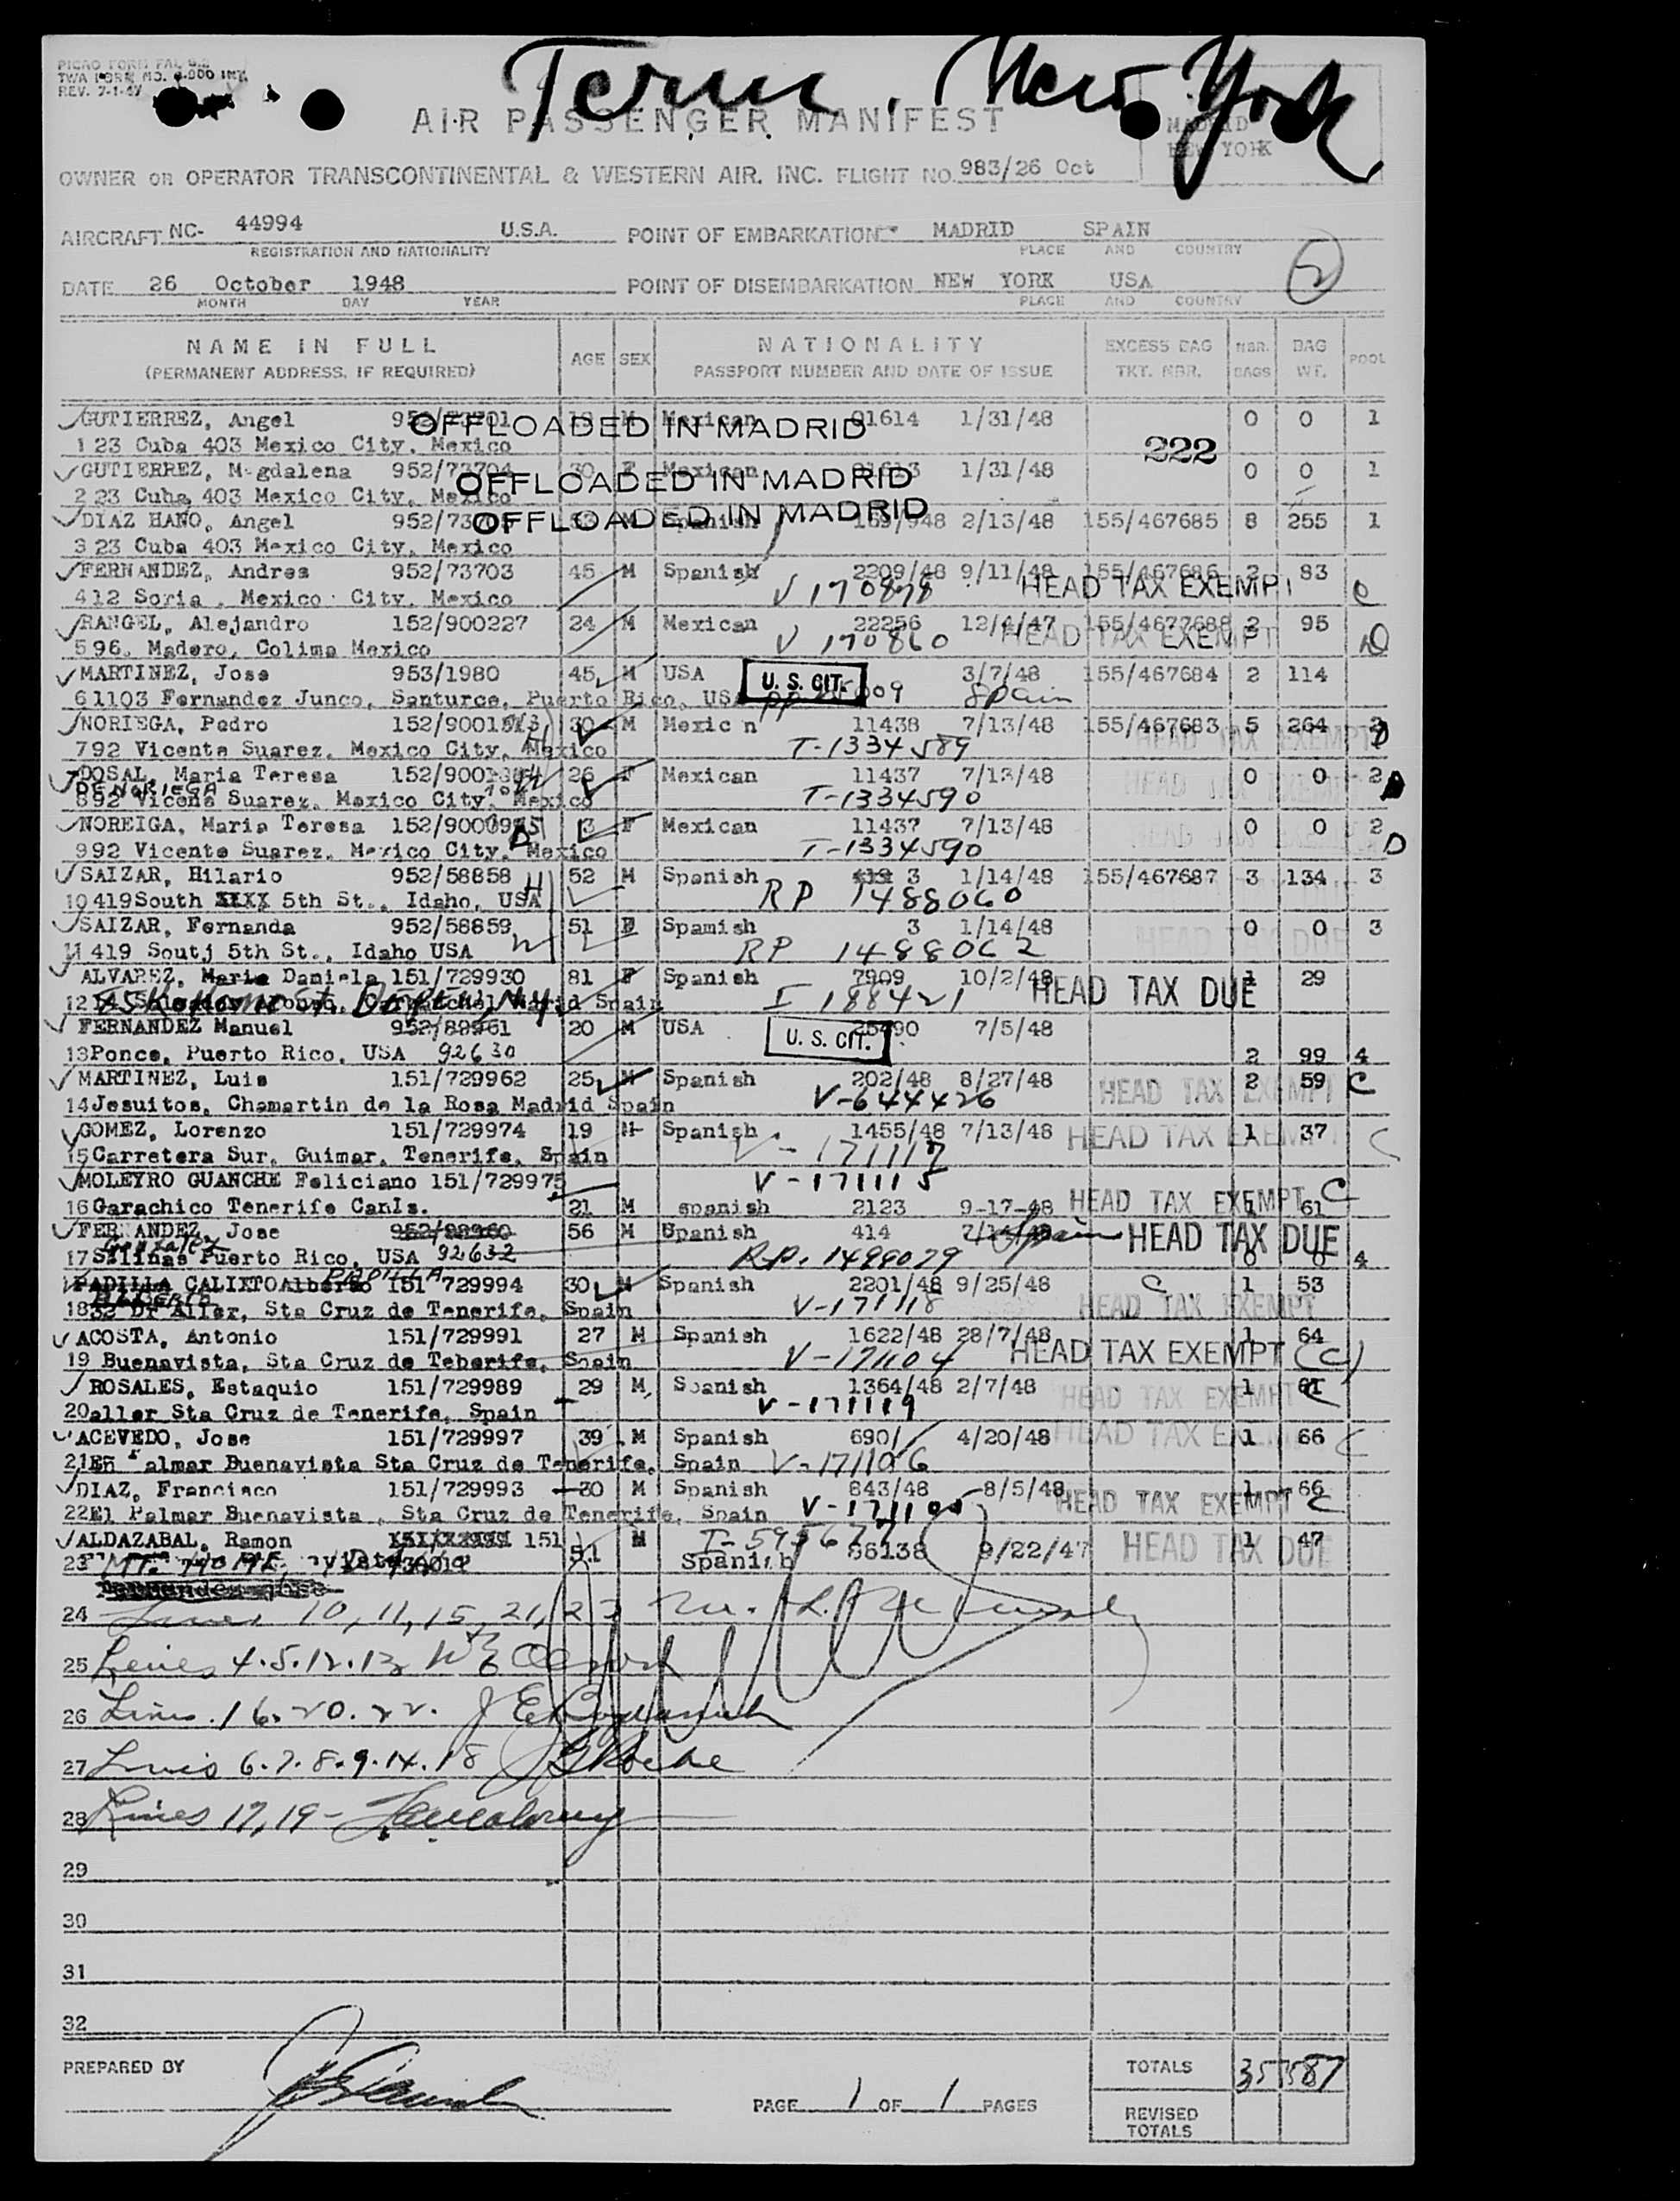 PICAO FORM PAL
TWA FORM NO. INT.
REV. 7-1-47
Term. New York
AIR PASSENGER MANIFEST
MADRID
NEW YORK
OWNER OR OPERATOR TRANSCONTINENTAL & WESTERN AIR. INC. FLIGHT NO. 983/26 Oct
AIRCRAFT NC- 44994 U.S.A. POINT OF EMBARKATION MADRID SPAIN
REGISTRATION AND NATIONALITY PLACE AND COUNTRY
2
DATE 26 October 1948 POINT OF DISEMBARKATION NEW YORK USA
MONTH DAY YEAR PLACE AND COUNTRY
NAME IN FULL AGE SEX NATIONALITY EXCESS BAG NBR. BAG POOL
(PERMANENT ADDRESS, IF REQUIRED) PASSPORT NUMBER AND DATE OF ISSUE TKT. NBR. BAGS WT.
GUTIERREZ, Angel Mexican 1/31/48 0 0 1
OFFLOADED IN MADRID
1 23 Cuba 403 Mexico City, Mexico
222
GUTIERREZ, M gdalena 952/73704 30 F Mexican 1/31/48 0 0 1
OFFLOADED IN MADRID
2 23 Cuba 403 Mexico City, Mexico
DIAZ HANO, Angel M Spanish 2/13/48 155/467685 8 255 1
OFFLOADED IN MADRID
3 23 Cuba 403 Mexico City, Mexico
FERNANDEZ, Andres 952/73703 45 M Spanish 2209/48 9/11/48 155/467686 2 83
4 12 Soria . Mexico City, Mexico V 170878 HEAD TAX EXEMPT C
RANGEL, Alejandro 152/900227 24 M Mexican 22256 12/4/47 155/4677688 2 95
5 96. Madero, Colima Mexico V 170860 HEAD TAX EXEMPT D
MARTINEZ, Jose 953/1980 45 M USA U. S. CIT. 3/7/48 155/467684 2 114
6 1103 Fernandez Junco, Santurce, Puerto Rico, USA Spain
NORIEGA, Pedro 30 M Mexic n 11438 7/13/48 155/467683 5 264
7 92 Vicente Suarez, Mexico City, Mexico T-1334589 HEAD TAX EXEMPT
DOSAL, Maria Teresa 26 F Mexican 11437 7/13/48 0 0 2
DE NORIEGA
8 92 Vicene Suarez, Mexico City, Mexico T-1334590
NOREIGA, Maria Teresa 3 F Mexican 11437 7/13/48 0 0 2
9 92 Vicente Suarez, Mexico City, Mexico T-1334590 D
SAIZAR, Hilario 952/58858 52 M Spanish 3 1/14/48 155/467687 3 134 3
10 419 South XXXX 5th St., Idaho, USA RP 1488060
SAIZAR, Fernanda 952/58859 51 F Spamish 3 1/14/48 0 0 3
11 419 Soutj 5th St., Idaho USA RP 1488062 HEAD TAX DUE
ALVAREZ, Maria Daniela 151/729930 81 F Spanish 7909 10/2/48 1 29
12 Madrid Spain I 188421 HEAD TAX DUE
FERNANDEZ Manuel 952/89961 20 M USA U. S. CIT. 7/5/48
13 Ponce, Puerto Rico, USA 92630 2 99 4
MARTINEZ, Luis 151/729962 25 M Spanish 202/48 8/27/48 2 59 C
14 Jesuitos, Chamartin de la Rosa Madrid Spain V-644426 HEAD TAX EXEMPT
GOMEZ, Lorenzo 151/729974 19 M Spanish 1455/48 7/13/48 1 37
15 Carretera Sur, Guimar, Tenerife, Spain V-171117 HEAD TAX EXEMPT C
MOLEYRO GUANCHE Feliciano 151/729975 V-171115
16 Garachico Tenerife CanIs. 21 M spanish 2123 9-17-48 HEAD TAX EXEMPT 1 61 C
FER ANDEZ, Jose 952/89960 56 M Spanish 414 Spain HEAD TAX DUE
17 Salinas Puerto Rico, USA 92632 R.P. 1499079 0 0 4
PADILLA CALIXTO Alberto PADILLA 151 729994 30 M Spanish 2201/48 9/25/48 C 1 53
ALBERTO
18 32 Dr Aller, Sta Cruz de Tenerife, Spain V-171118 HEAD TAX EXEMPT
ACOSTA, Antonio 151/729991 27 M Spanish 1622/48 28/7/48 1 64
19 Buenavista, Sta Cruz de Teberife, Spain V-171104 HEAD TAX EXEMPT (C)
ROSALES, Estaquio 151/729989 29 M Spanish 1364/48 2/7/48 1 61
20 aller Sta Cruz de Tenerife, Spain V-171119 HEAD TAX EXEMPT C
ACEVEDO, Jose 151/729997 39 M Spanish 690/ 4/20/48 HEAD TAX EXEMPT 1 66 C
21 almar Buenavista Sta Cruz de Tenerife, Spain V-171106
DIAZ, Francisco 151/729993 20 M Spanish 843/48 8/5/48 1 66
22 El Palmar Buenavista , Sta Cruz de Tenerife, Spain HEAD TAX EXEMPT C
ALDAZABAL, Ramon 151 51 M 1 47
23 Spanish 66138 9/22/47 HEAD TAX DUE
24 Lines 10, 11, 15, 21, 23
25 Lines 4.5.12.13
26 Lines 16.20.22.
27 Lines 6.7.8.9.14.18
28 Lines 17, 19 -
29
30
31
32
PREPARED BY
TOTALS 35 1587
PAGE 1 OF 1 PAGES
REVISED
TOTALS